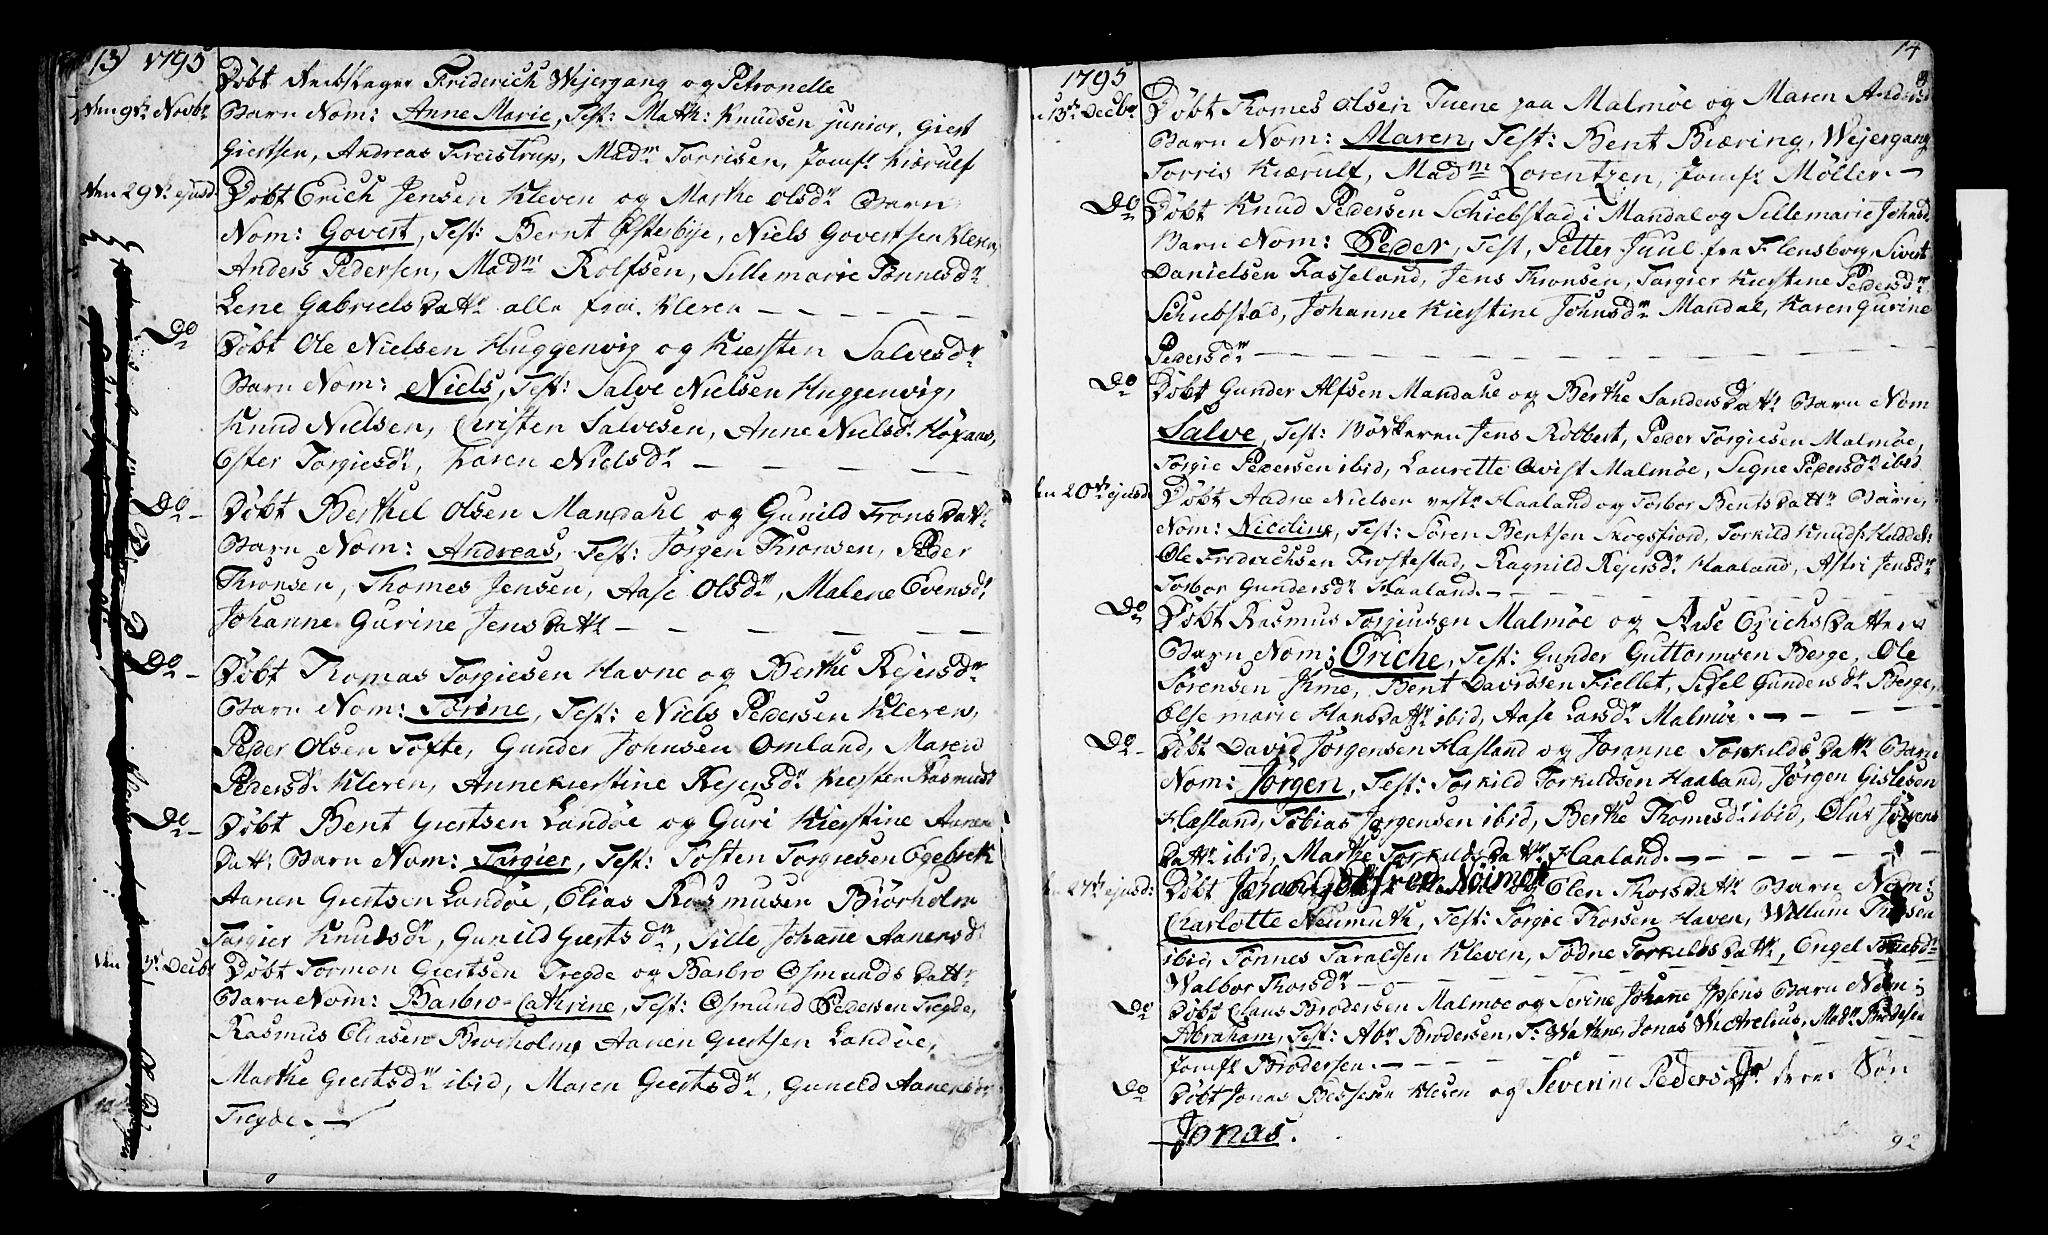 13 1795
Den 9de Novbr
Døbt Friderich Wejergang og Petronelle
Barn Nom: Anne Marie, Test: Math: Knudsen junior, Giert
Giertsen, Andreas Freistrup, Madm Torrisen, Jomfr Kierulf
Den 29de ejusd
Døbt Erich Jensen Kleven og Marthe Olsdr Barn
Nom: Govert, Test: Bernt Østerbije, Niels Govertsen Kleven,
Anders Pedersen, Madm Rolfsen, Sillemarie Tønnesdr
Lene Gabriels Dattr alle fra Kleven
Do
Døbt Ole Nielsen Huggenvig og Kiersten Salvesdr
Barn Nom: Niels, Test: Salve Nielsen Huggenvig,
Knud Nielsen, Christen Salvesen, Anne Nielsdr
Ester Torgiesdr, Karen Nielsdr
Do
Døbt Berthel Olsen Mandahl og Gunild Trons Dattr
Barn Nom: Andreas, Test: Jørgen Tronsen, Peder
Thronsen, Thomes Jensen, Aase Olsdr, Malene Evensdr
Johanne Gurine Jens Dattr
Do
Døbt Thomas Torgiesen Havne og Berthe Rejersdr
Barn Nom: Torine, Test: Niels Pedersen Kleven,
Peder Olsen Tofte, Gunder Johnsen Omland, Maren
Pedersdr Kleven, Annekierstine Rejersdr Kiersten Rasmusdr
Do
Døbt Bent Giertsen Landøe og Guri Kierstine Aanen
Dattr Barn Nom: Targier, Test: Tosten Torgiesen Egebech
Aanen Giertsen Landøe, Elias Rasmusen Biørholm
Targier Knudsdr, Gunild Giertsdr, Sille Johanne Aanensdr
Decbr
Døbt Tormon Giertsen Tregde og Barbro Osmunds Dattr
Barn Nom: Barbro-Cathrine, Test: Osmund Pedersen Tregde,
Rasmus Eliasen, Aanen Giertsen Landøe,
Marthe Giertsdr ibid, Maren Giertsdr, Gunild Aanensdr
Tregde.
14
1795
13de Decbr
Døbt Thomes Olsen Tuene paa Malmøe og Maren Andersd
Barn Nom: Maren, Test: Bent Biæring, Wejergang
Torris Kiærulf, Madm Lorentzen, Jomfr Møller.
Do
Døbt Knud Pedersen Schiebstad i Mandal og Sillemarie Johnsd
Barn Nom: Peder, Test, Petter Juul fra Flensborg, Sivert
Danielsen Fasseland, Jens Thronsen, Targier Kierstene Pedersdr
Schiebstad, Johanne Kierstine Johnsdr Mandal, Karen Gurine
Pedersdr
Do
Døbt Gunder Alfsen Mandahl og Berthe Sanders Dattr Barn Nom
Salve, Test: Bødkeren Jens Robbert, Peder Torgiesen Malmøe,
Torgie Pedersen ibid, Laurette Qvist Malmøe, Signe Pedersdr ibid
Den 20de ejusd
Døbt Aadne Nielsen vestr Haaland og Torbor Bents Dattr Barn,
Nom: Nicoline, Test: Søren Bentsen Skogsfiord, Torkild Knuds:
Ole Friderichsen Frøstestad, Ragnild Rejersdr Haaland, Astri Jensdr
Torbor Gundersdr Haaland.
Do
Døbt Rasmus Torgiusen Malmøe og Aase Erichs Datter
Barn Nom: Eriche, Test: Gunder Guttormsen Berge, Ole
Sørensen Ime, Bent Davidsen Fiellet, Sisel Gundersdr Berge,
Else marie Hans Dattr ibid, Aase Larsdr Malmøe.
Do
Døbt David Jørgensen Hasland og Joranne Torkilds Dattr Barn
Nom: Jørgen, Test: Torkild Torkildsen Haaland, Jørgen Gislesen
Hasland, Tobias Jørgensen ibid, Berthe Thomesdr ibid, Olur Jørgens
Dattr ibid, Marthe Torkilds Dattr Haaland.
27de ejusd:
Døbt Johan Gotfred Noimot og Elen Thors Dattr Barn Nom:
Charlotte Neumuth, Test: Torgie Thorsen Haven, Willum Thorsen
ibid, Tønnes Taraldsen Kleven, Todne Torkilds Dattr, Engel
Walbor Thorsdr
Do
Døbt Claus Brodersen Malmøe og Serine Johanne Ipsens Barn Nom:
Abraham, Test: Abr Brodersen, T: Wathne, Jonas, Madm Brodersen
Jomfr Brodersen.
Do
Døbt Jonas Bessesen Kleven og Severine Pedersdr deres Søn
Jonas.
92